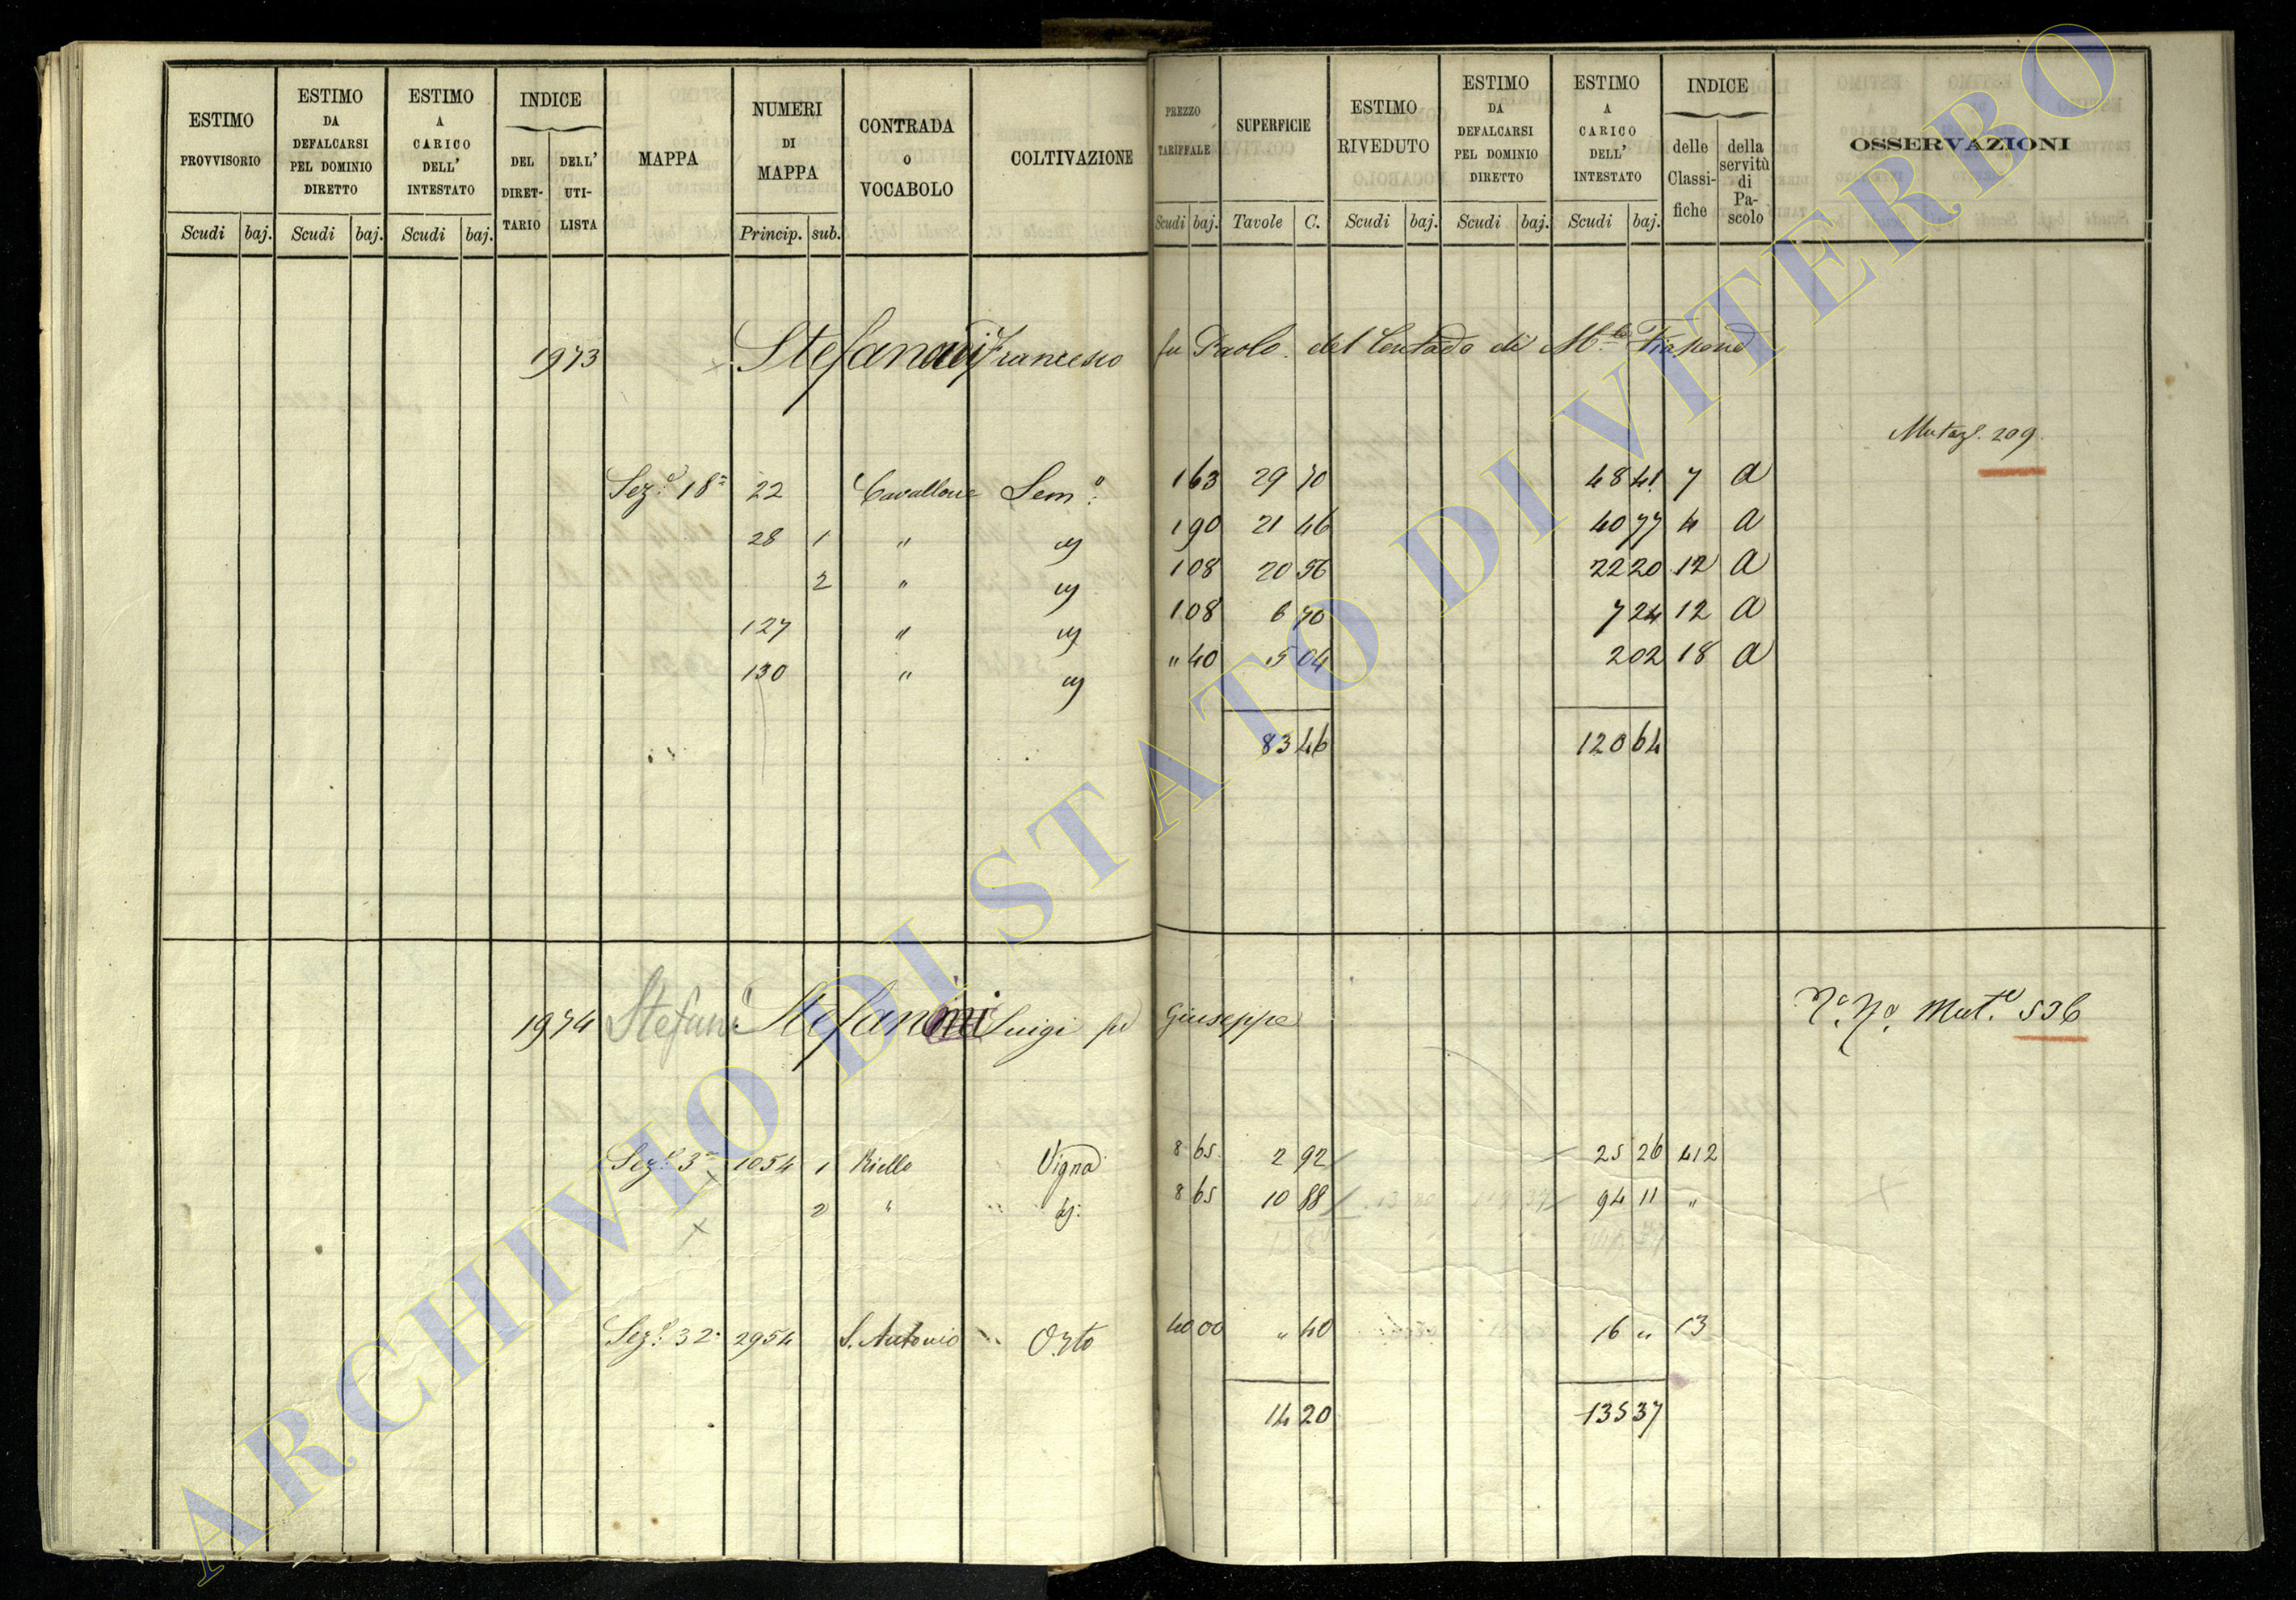 ESTIMO PROVVISORIO
Scudi baj.
ESTIMO DA DEFALCARSI PEL DOMINIO DIRETTO
Scudi baj.
ESTIMO A CARICO DELL' INTESTATO
Scudi baj.
INDICE
DEL DIRET-TARIO
DELL' UTI-LISTA
MAPPA
NUMERI DI MAPPA
Princip. sub.
CONTRADA O VOCABOLO
COLTIVAZIONE
PREZZO TARIFFALE
Scudi baj.
SUPERFICIE
Tavole C.
ESTIMO RIVEDUTO
Scudi baj.
ESTIMO DA DEFALCARSI PEL DOMINIO DIRETTO
Scudi baj.
ESTIMO A CARICO DELL' INTESTATO
Scudi baj.
INDICE
delle Classi-fiche
della servitù di Pa-scolo
OSSERVAZIONI
1973 Francesco fu Paolo del Contado di
Mutaz. 209
Sez.e 18a 22 Cavallone Sem.o 1 63 29 70 48 41 7 a
28 1 " 1 90 21 46 40 77 4 a
2 " 1 08 20 56 22 20 12 a
127 " 1 08 6 70 7 24 12 a
130 " " 40 5 04 2 02 18 a
83 46 120 64
1974 Stefani Stefanini Luigi fu Giuseppe
Mut.e 536
Sez.e 3a 1054 1 Riello Vigna 8 65 2 92 25 26 412
2 " 8 65 10 88 94 11 "
Sez.e 32a 2954 S. Antonio Orto 40 00 " 40 16 " 13
14 20 135 37
ARCHIVIO DI STATO DI VITERBO